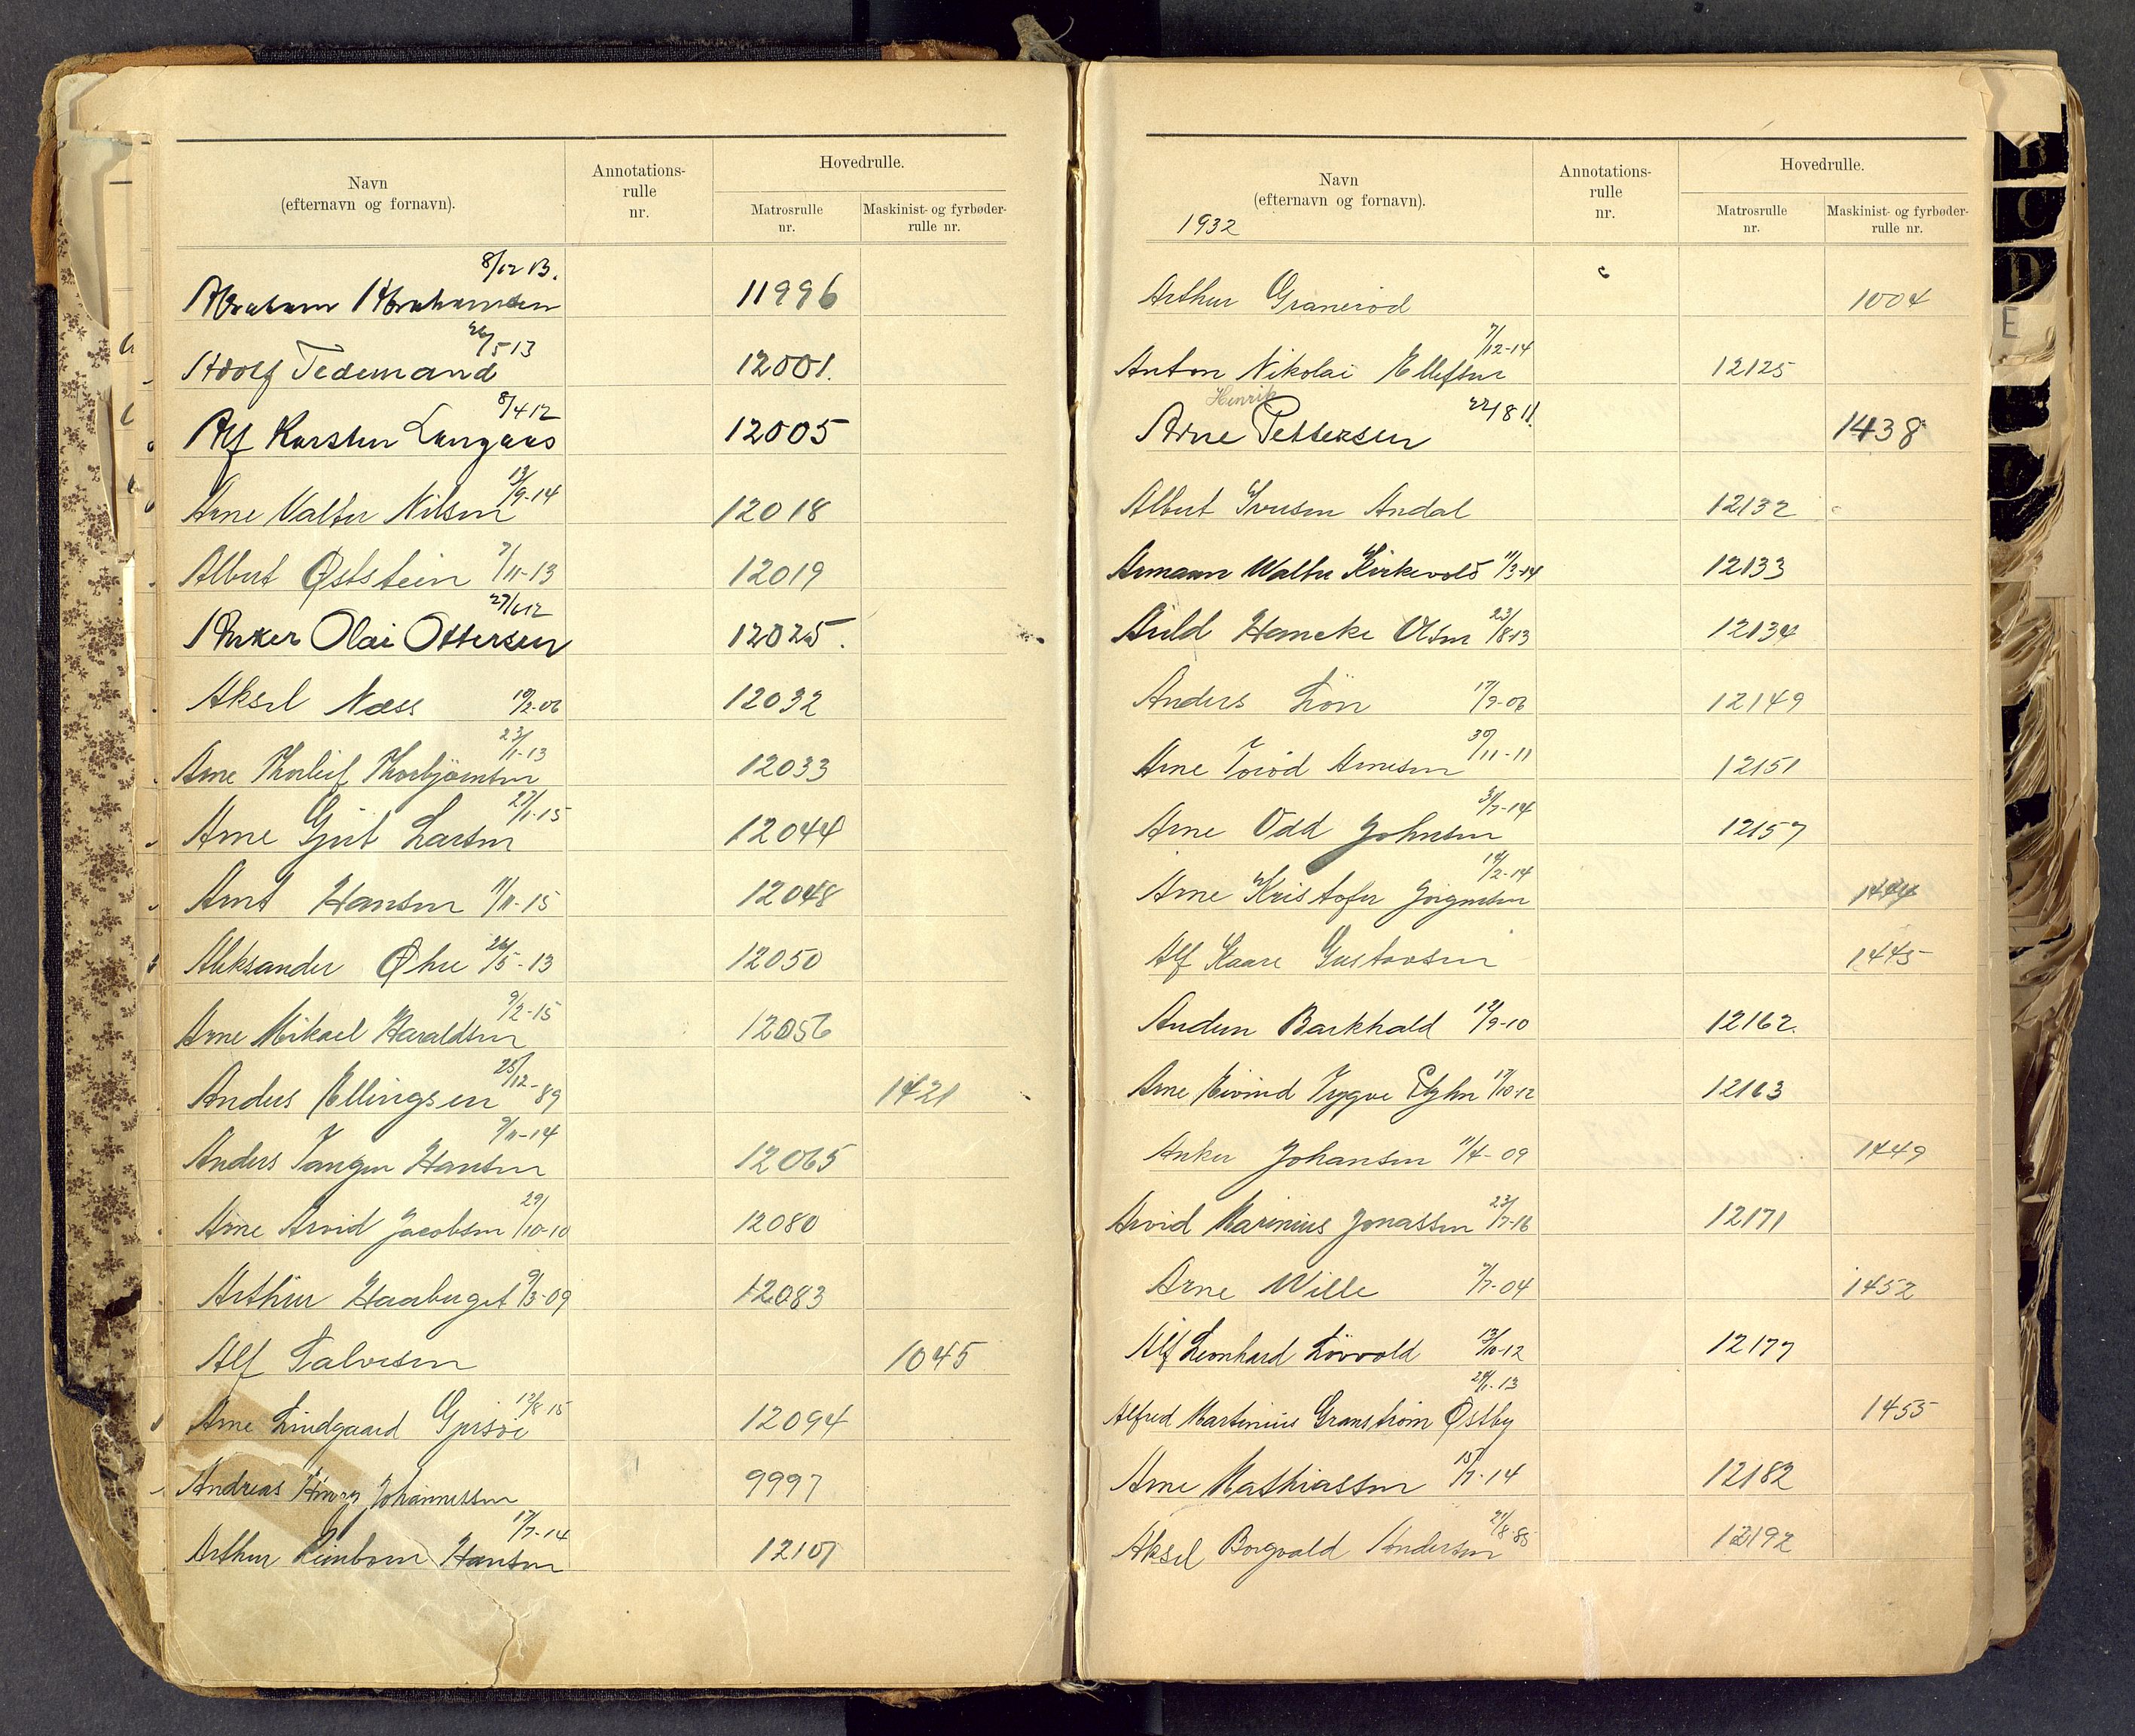 Navn
(efternavn og fornavn).
Annotations-
rulle
nr.
Hovedrulle.
Matrosrulle
nr.
Maskinist- og fyrbøder-
rulle nr.
8/12 13.
Abraham Abrahamsen 11996
26/5 13
Adolf Tidemand 12001.
8/4 12
Alf Karsten Langaas 12005
13/9-14
Arne Valter Nilsen 12018
Albert Øststein 7/11-13 12019
27/6 12
Anker Olai Ottersen 12025.
Aksel Næss 10/2-06 12032
23/1-13
Arne Thorleif Thorbjørnsen 12033
27/1-15
Arne Gjert Larsen 12044
Arnt Hansen 11/11-15 12048
Aleksander Øhre 26/5-13 12050
9/2-15
Arne Mikael Haraldsen 12056
25/12-89
Anders Ellingsen 1421
9/11-14
Anders Tangen Hansen 12065
Arne Arvid Jacobsen 29/10-10 12080
Arthur Haaberget 9/3-09 12083
Alf Salvesen 1045
Arne Lindgaard 12/8 15 12094
Andreas Henry Johannessen 9997
17/7-14
Arthur Reinborn Hansen 12107
Navn
(efternavn og fornavn).
1932
Annotations-
rulle
nr.
Hovedrulle.
Matrosrulle
nr.
Maskinist- og fyrbøder-
rulle nr.
Arthur Granerød 1004
7/12-14
Anton Nikolai Ellefsen 12125
Henrik 22/8 11.
Arne Pettersen 1438
Albert Iversen Andal 12132
Armann Walter Kirkevold 11/3-14 12133
Arild Hancke Olsen 23/8-13 12134
Anders Løn 17/9-06 12149
30/11-11
Arne Toralf Arnesen 12151
31/7-14
Arne Odd Johnsen 12157
14/2-14
Arne Kristofer Jørgensen 1444
Alf Kaare Gustavsen 1445
Audun Barkhald 12/9-10 12162.
Arne Eivind Trygve 17/10-12 12163
Anker Johansen 11/4-09 1449
Arvid Marinius Jonassen 23/7-16 12171
Arne Wille 7/7-04 1452
Alf Leonhard Løvvold 13/10-12 12177
29/1-13
Alfred Martinius Granstrøm Østby 1455
Arne Mathiassen 15/7-14 12182
21/8-85
Aksel Borgvald Andersen 12192
B
C
D
E